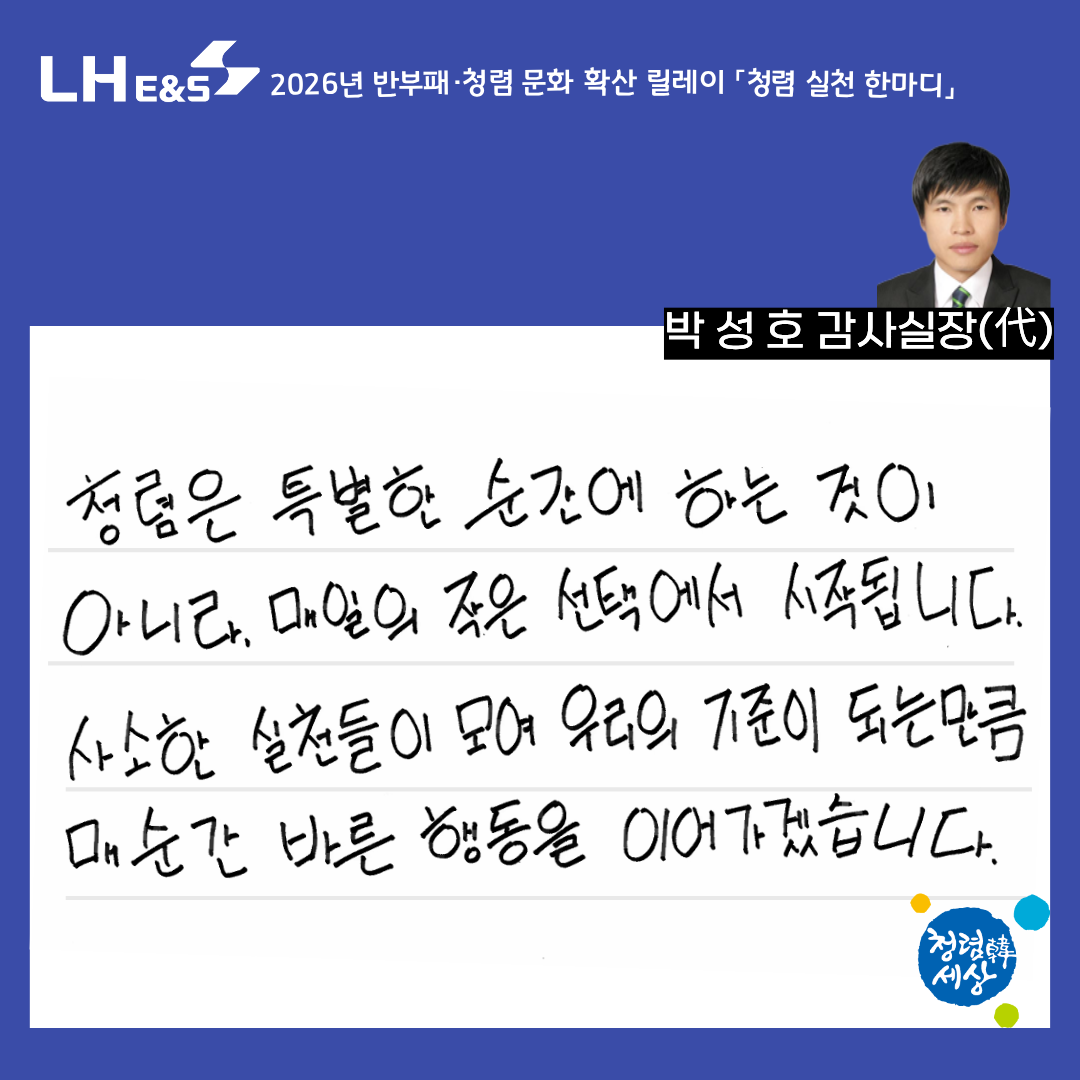 LH E&S 2026년 반부패·청렴 문화 확산 릴레이 「청렴 실천 한마디」
박 성 호 감사실장(代)
청렴은 특별한 순간에 하는 것이
아니라, 매일의 작은 선택에서 시작됩니다.
사소한 실천들이 모여 우리의 기준이 되는만큼
매순간 바른 행동을 이어가겠습니다.
청렴韓
세상